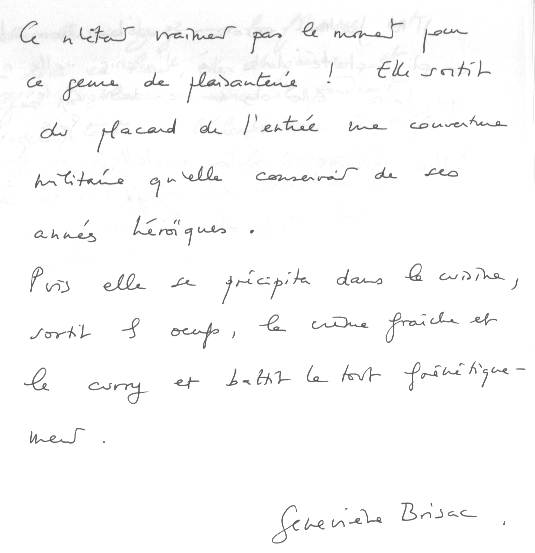 Ce n'était vraiment pas le moment pour
ce genre de plaisanterie ! Elle sortit
du placard de l'entrée une couverture
militaire qu'elle conservait de ses
années héroïques.
Puis elle se précipita dans la cuisine,
sortit 8 oeufs, la crème fraîche et
le curry et battit le tout frénétique-
ment.
Geneviève Brisac.